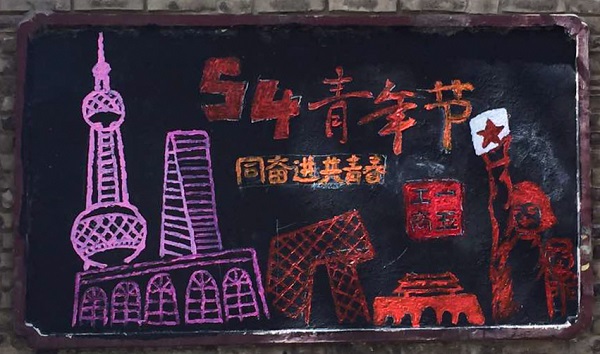 54青年节
同奋进共青春
工商